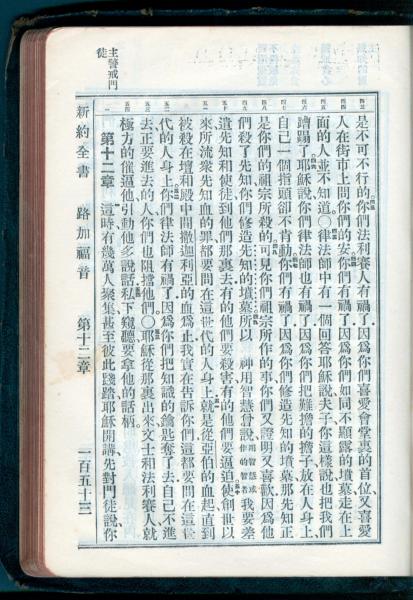 是不可不行的你們法利賽人有禍了因爲你們喜愛會堂裏的首位又喜愛
人在街市上問你們的安你們有禍了因爲你們如同不顯露的墳墓走在上
面的人並不知道〇律法師中有一個回答耶穌說夫子你這樣說也把我們
蹧蹋了耶穌說你們律法師也有禍了因爲你們把難擔的擔子放在人身上
自己一個指頭卻不肯動你們有禍了因爲你們修造先知的墳墓那先知正
是你們的祖宗所殺的可見你們祖宗所作的事你們又證明又喜歡因爲他
們殺了先知你們修造先知的墳墓所以 神用智慧曾說我要差
遣先知和使徒到他們那裏去有的他們要殺害有的他們要逼迫使創世以
來所流衆先知血的罪都要問在這世代的人身上就是從亞伯的血起直到
被殺在壇和殿中間撒迦利亞的血爲止我實在告訴你們這都要問在這世
代的人身上你們律法師有禍了因爲你們把知識的鑰匙奪了去自己不進
去正要進去的人你們也阻擋他們〇耶穌從那裏出來文士和法利賽人就
極力的催逼他引動他多說話私下窺聽要拿他的話柄
第十二章 這時有幾萬人聚集甚至彼此踐踏耶穌開講先對門徒說你
主警戒門
徒
新約全書 路加福音 第十二章 一百五十三